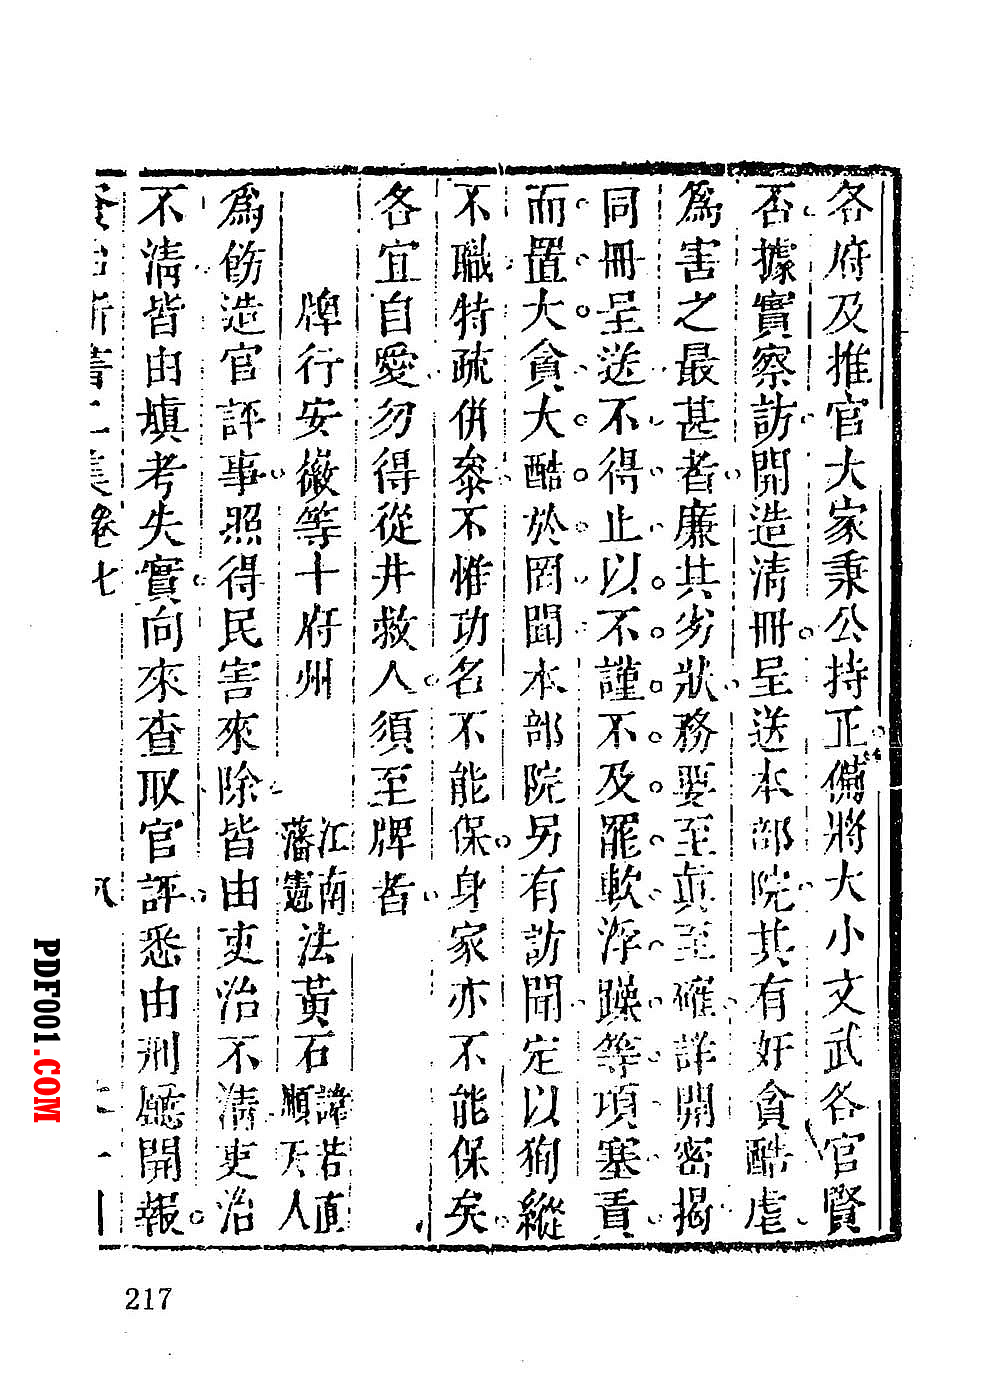 各府及推官大家秉公持正備將大小文武各官賢
否據實察訪開造清冊呈送本部院其有奸貪酷虐
為害之最甚者廉其劣狀務要至真至確詳開密揭
同冊呈送不得止以不謹不及罷軟浮躁等項塞責
而置大貪大酷於罔聞本部院另有訪聞定以狥縱
不職特疏併叅不惟功名不能保身家亦不能保矣
各宜自愛勿得從井救人須至牌者
牌行安徽等十府州 江南藩憲法黃石諱若真順天人
為飭造官評事照得民害來除皆由吏治不清吏治
不清皆由填考失實向來查取官評悉由刑廳開報
資治新書二集卷七 八
217
PDF001.COM